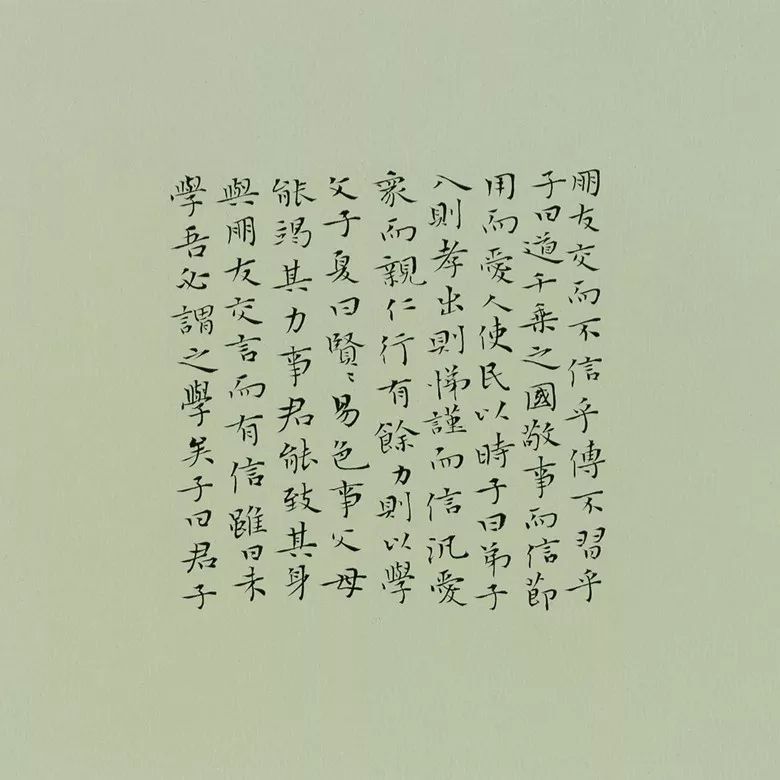 朋友交而不信乎傳不習乎
子曰道千乗之國敬事而信節
用而愛人使民以時子曰弟子
入則孝出則悌謹而信汎愛
衆而親仁行有餘力則以學
父子夏曰賢〻易色事父母
能竭其力事君能致其身
與朋友交言而有信雖曰未
學吾必謂之學矣子曰君子